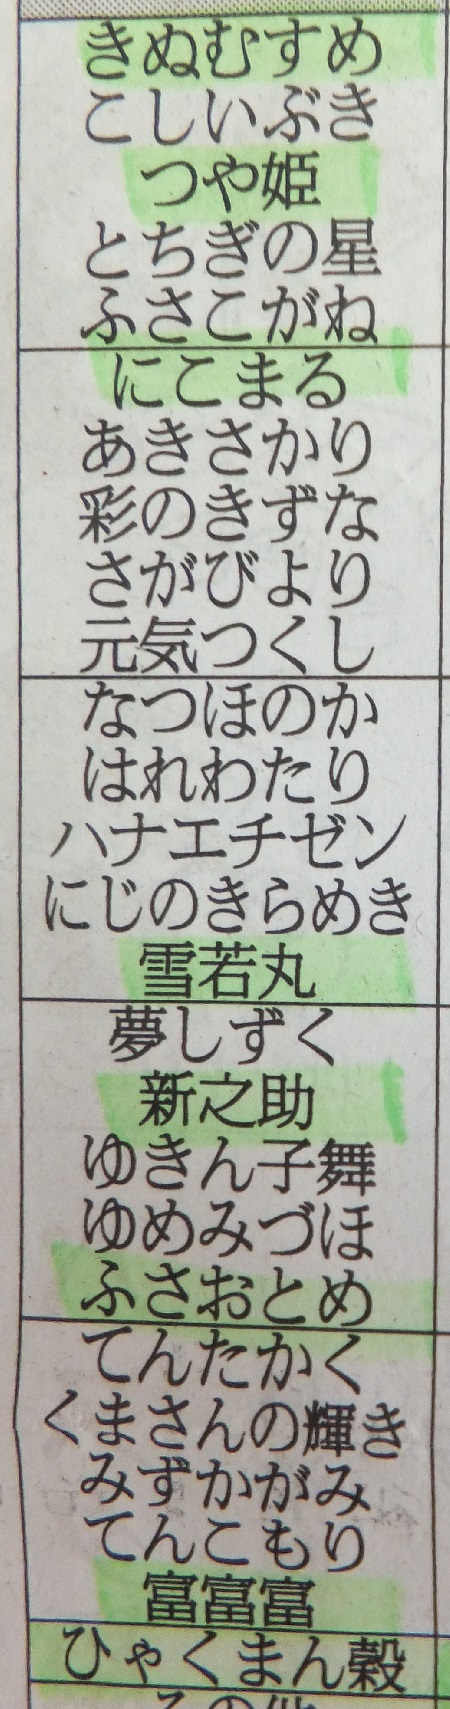 きぬむすめ
こしいぶき
つや姫
とちぎの星
ふさこがね
にこまる
あきさかり
彩のきずな
さがびより
元気つくし
なつほのか
はれわたり
ハナエチゼン
にじのきらめき
雪若丸
夢しずく
新之助
ゆきん子舞
ゆめみづほ
ふさおとめ
てんたかく
くまさんの輝き
みずかがみ
てんこもり
富富富
ひゃくまん穀
その他